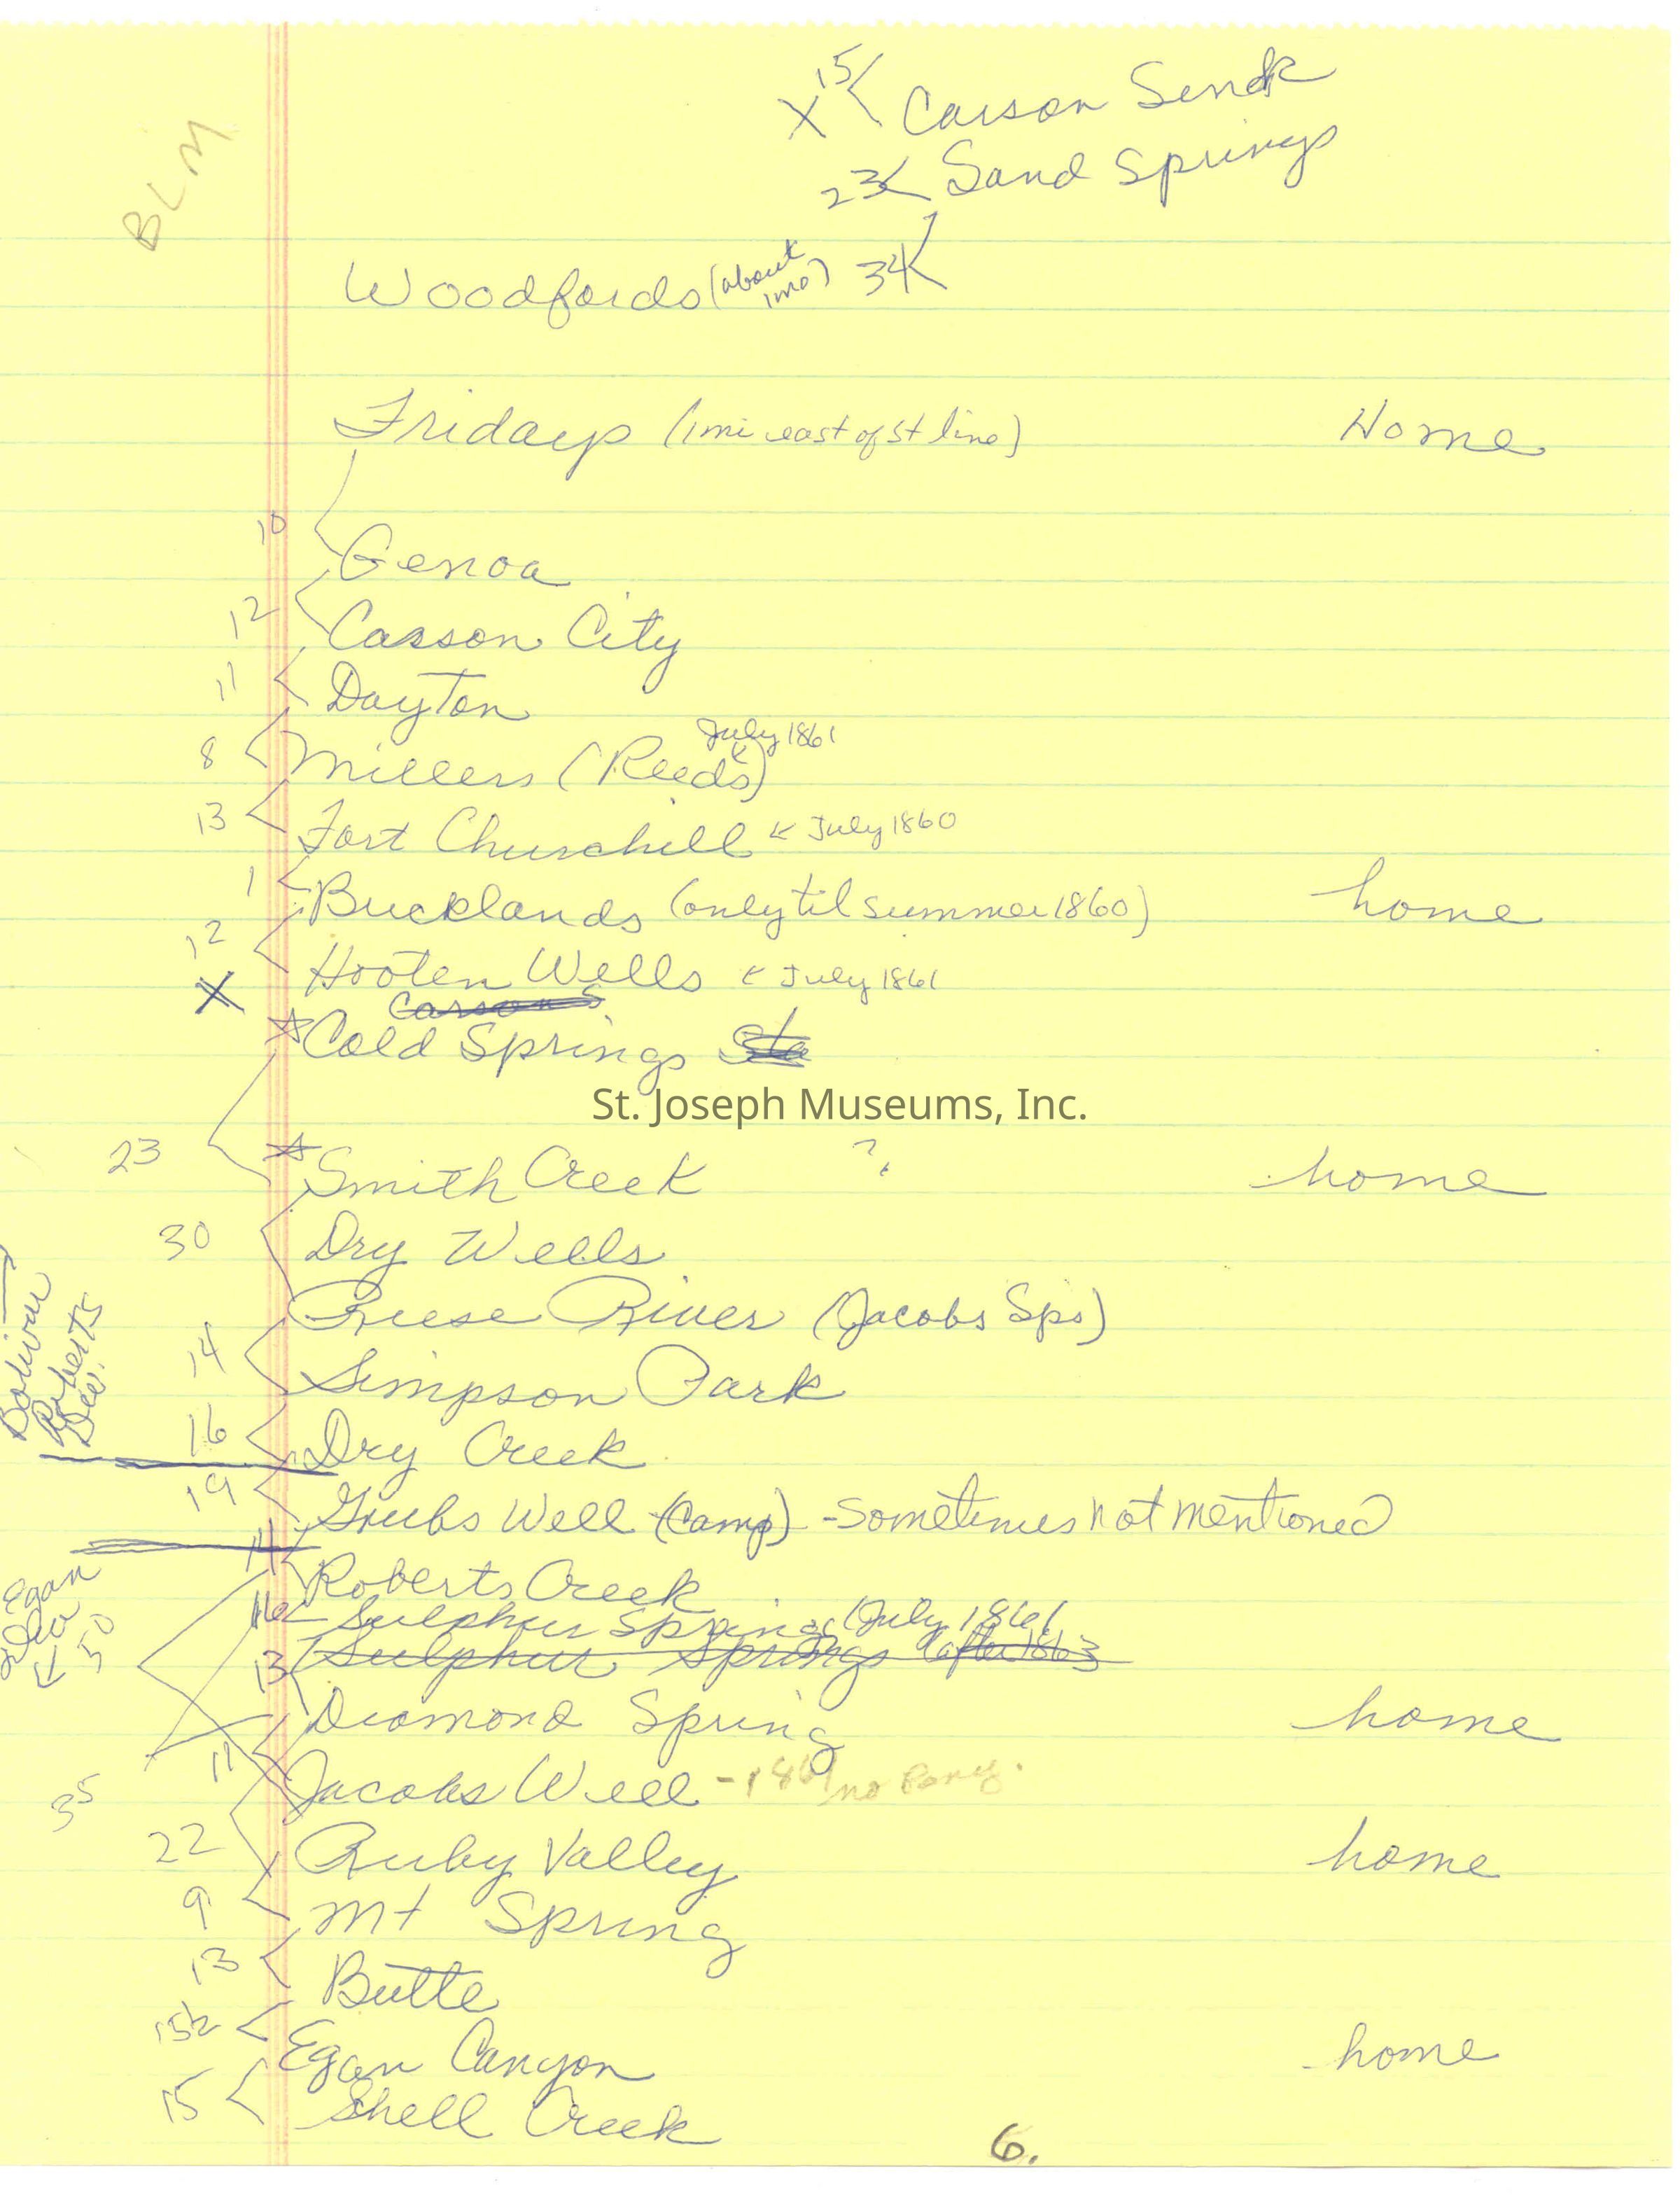 BLM
X 15< Carson Sink
23< Sand Springs
Woodfords (about 1mo) 34<
Fridays (1 mi east of St line) Home
10
Genoa
12
Carson City
11
Dayton
July 1861
8 Millers (Reeds)
13
Fort Churchill < July 1860
1
Bucklands (only til summer 1860) home
12
Hooten Wells < July 1861
X
Carsons
☆ Cold Springs Sta
St. Joseph Museums, Inc.
23
☆ Smith Creek ? home
30
Dry Wells
Reese River (Jacobs Sps)
14
Simpson Park
16
Dry Creek
Bolivar
Roberts
Div.
19
Grubs Well (Camp) - sometimes not mentioned
14
Roberts Creek
Egan
Div
50
16 Sulphur Springs (July 1861
13 Sulphur Springs (after 1863
Diamond Spring home
11
Jacobs Well - 1861 no Pony.
35
22
Ruby Valley home
9
Mt Spring
13
Butte
15½
Egan Canyon home
15
Shell Creek
6.